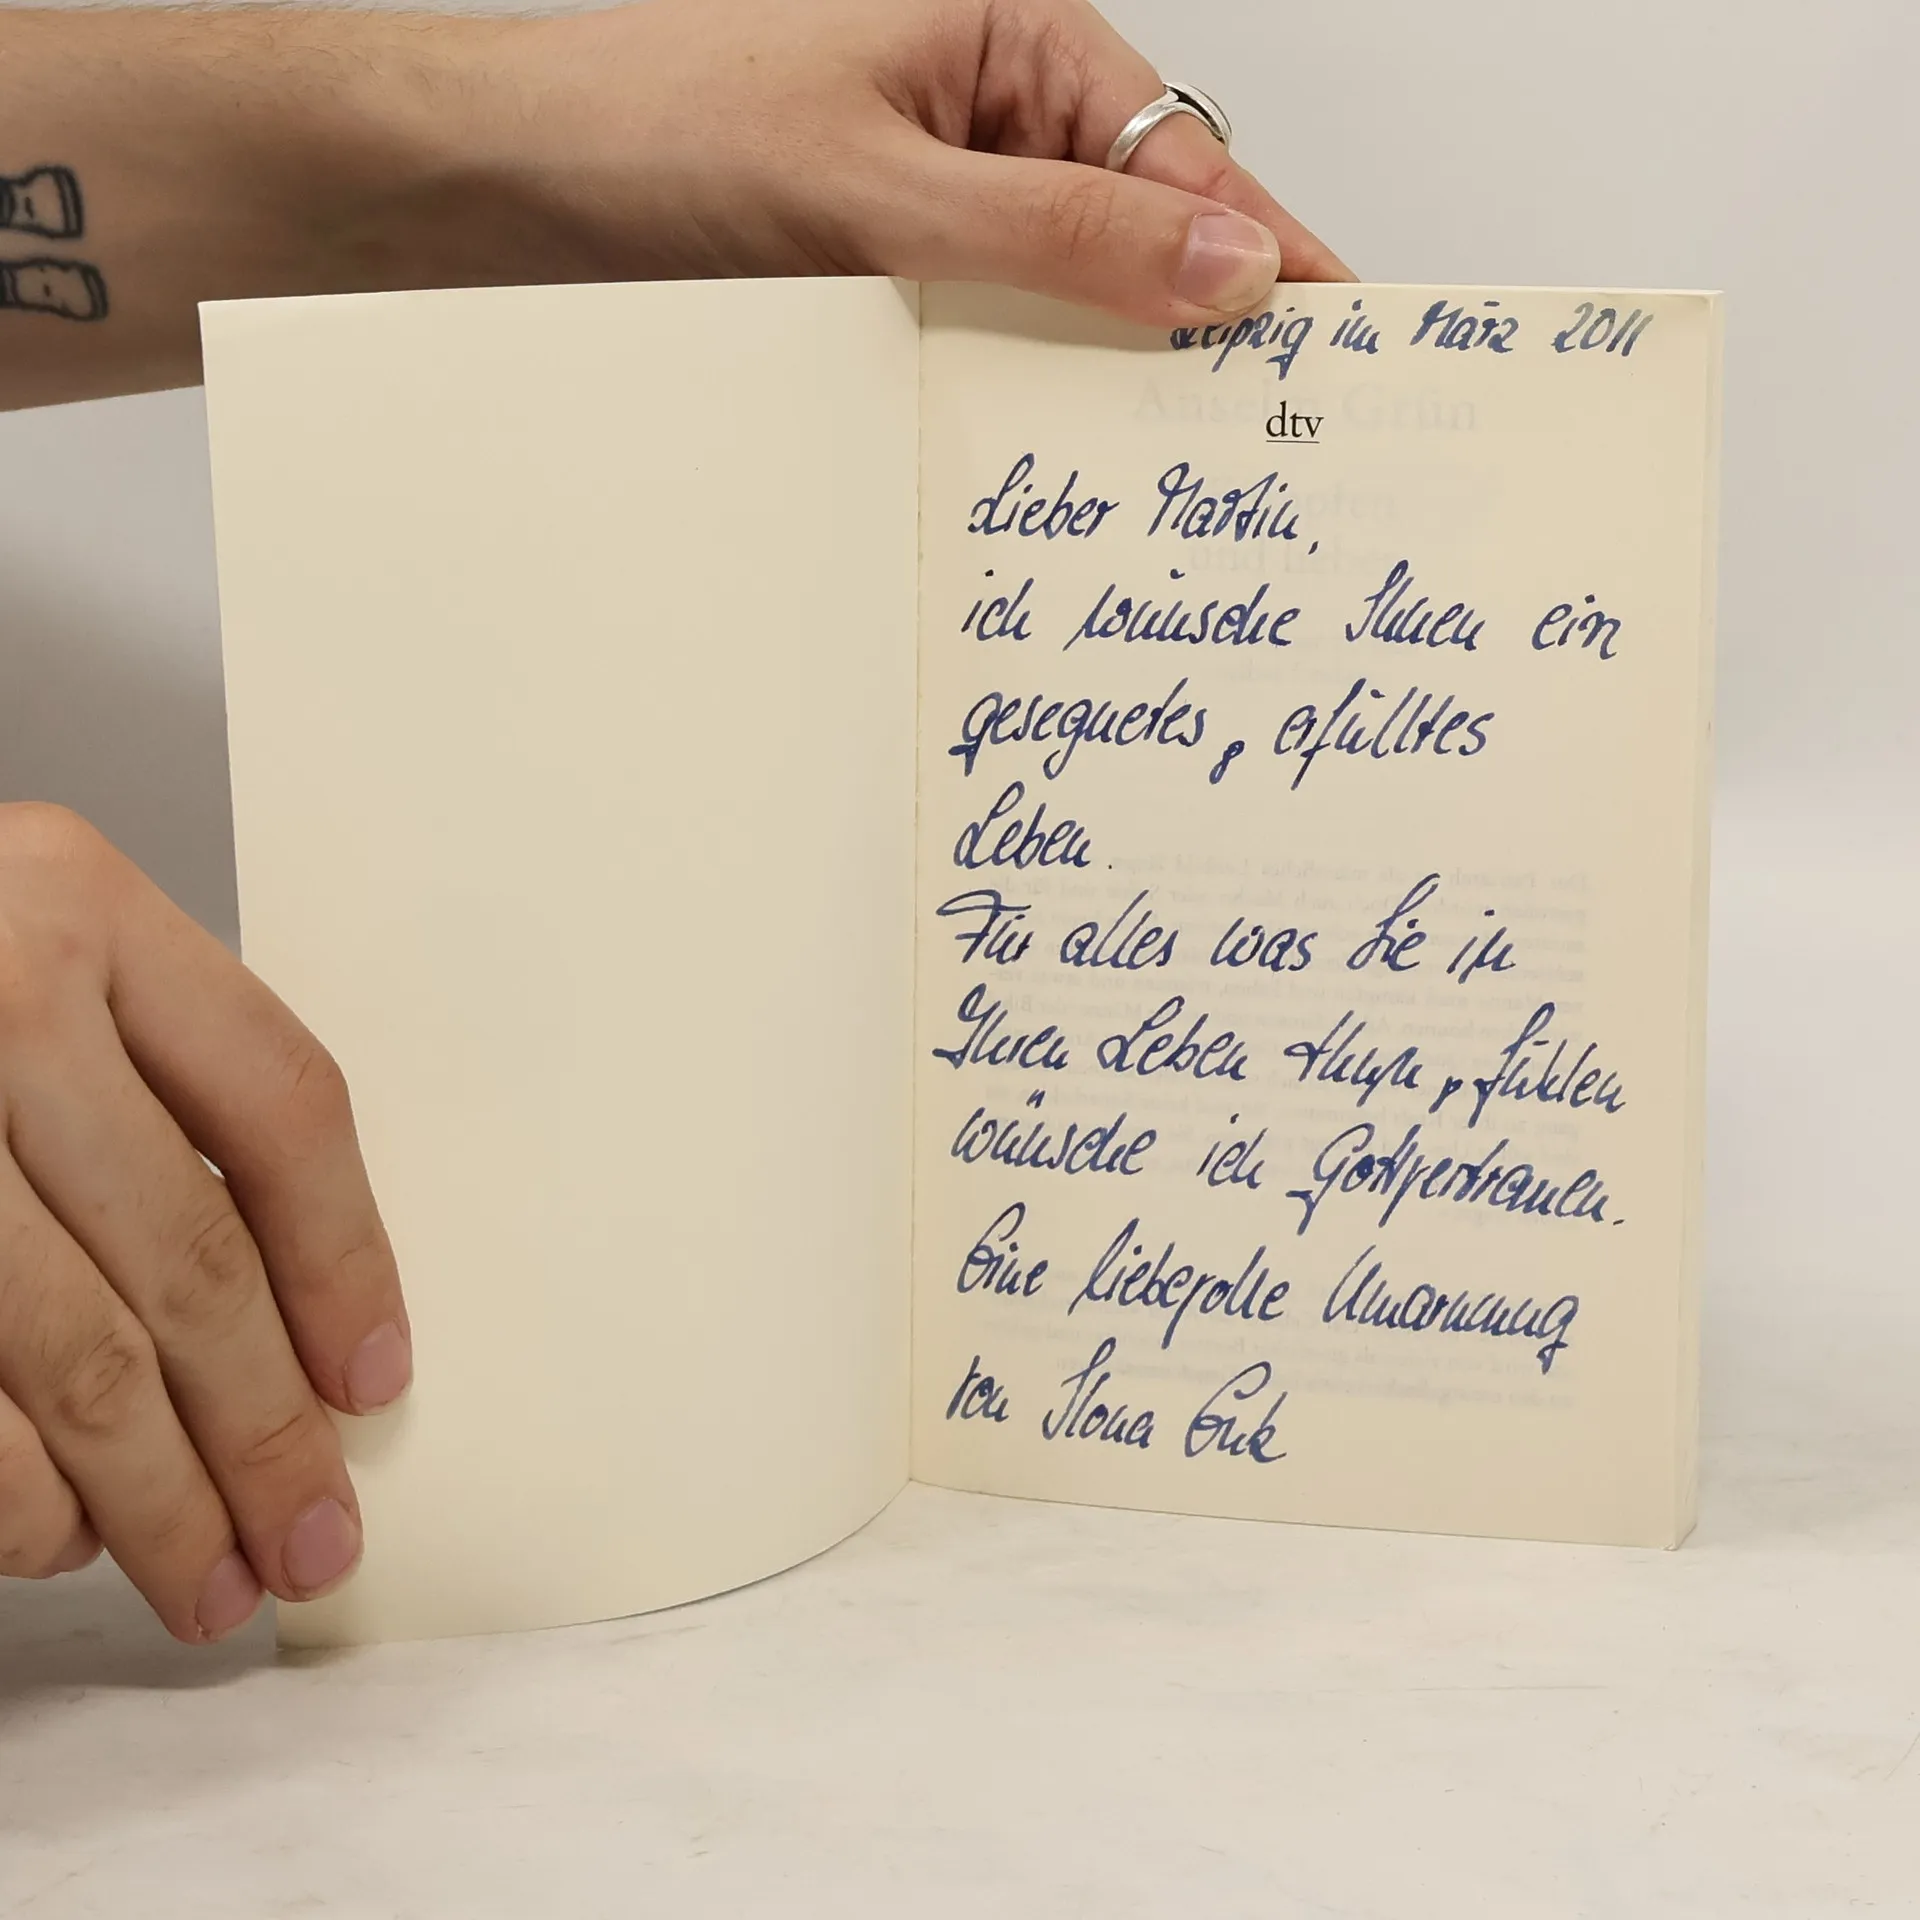 Leipzig im März 2011
Anselm Grün
dtv
Lieber Martin,
ich wünsche Ihnen ein
gesegnetes, erfülltes
Leben.
Für alles was Sie in
Ihren Leben thun, fühlen
wünsche ich Gottvertrauen.
Eine liebevolle Umarmung
von Ilona